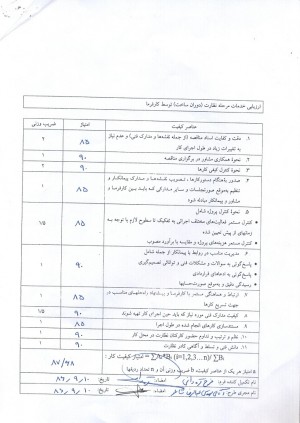 ارزیابی خدمات مرحله نظارت (دوران ساخت) توسط کارفرما
عناصر کیفیت امتیاز ضریب وزنی
۱. دقت و کفایت اسناد مناقصه (از جمله نقشه‌ها و مدارک فنی) و عدم نیاز به تغییرات زیاد در طول اجرای کار ۸۵ ۲
۲. نحوه همکاری مشاور در برگزاری مناقصه ۹۰ ۱
۳. نحوه کنترل کیفی کارها ۹۰ ۲
۴. صدور بهنگام دستورکارها، تصویب نقشه‌ها و مدارک پیمانکار و تنظیم بموقع صورتجلسات و سایر مدارکی که باید بین کارفرما و مشاور و پیمانکار مبادله شود ۸۵ ۱
۵. نحوه کنترل پروژه شامل
کنترل مستمر فعالیت‌های مختلف اجرائی به تفکیک تا سطوح لازم با توجه به زمانهای از پیش تعیین شده
کنترل مستمر هزینه‌های پروژه و مقایسه با برآورد مصوب ۸۵ ۱/۵
۶. مدیریت مناسب در روابط با پیمانکار از جمله شامل
پاسخ‌گوئی به سوالات و مشکلات فنی و توانائی تصمیم‌گیری
پاسخ‌گوئی به ادعاهای قراردادی
رسیدگی دقیق و بموقع صورت‌حسابها ۹۰ ۱
۷. ارتباط و هماهنگی مستمر با کارفرما و پیشنهاد راه‌حلهای مناسب در جهت تسریع کارها ۸۵ ۱
۸. کیفیت مدارک فنی مورد نیاز که باید حین اجرای کار تهیه شوند ۹۰ ۱/۵
۹. مستندسازی کارهای انجام شده در طول اجرا ۸۵ ۱
۱۰. نظم و ترتیب و تداوم حضور کارکنان نظارت در محل کار ۹۰ ۱
۱۱. دانش فنی و تسلط و آگاهی کادر نظارت ۹۰ ۱
امتیاز کیفیت کار: =∑ai*Bi (i=1,2,3...n)/∑Bi ۸۷/۶۸
نام تکمیل کننده فرم: امضاء: تاریخ: ۸۶,۹,۱۰
نام مدیر طرح: امضاء: تاریخ: ۸۶,۹,۱۰